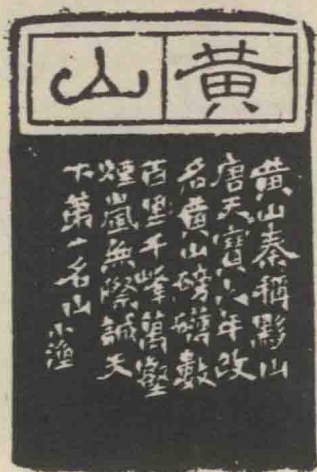 黄山
黄山秦稱黟山
唐天寶六年改
名黄山磅礴數
百里千峰萬壑
煙嵐無際誠天
下第一名山 小漁